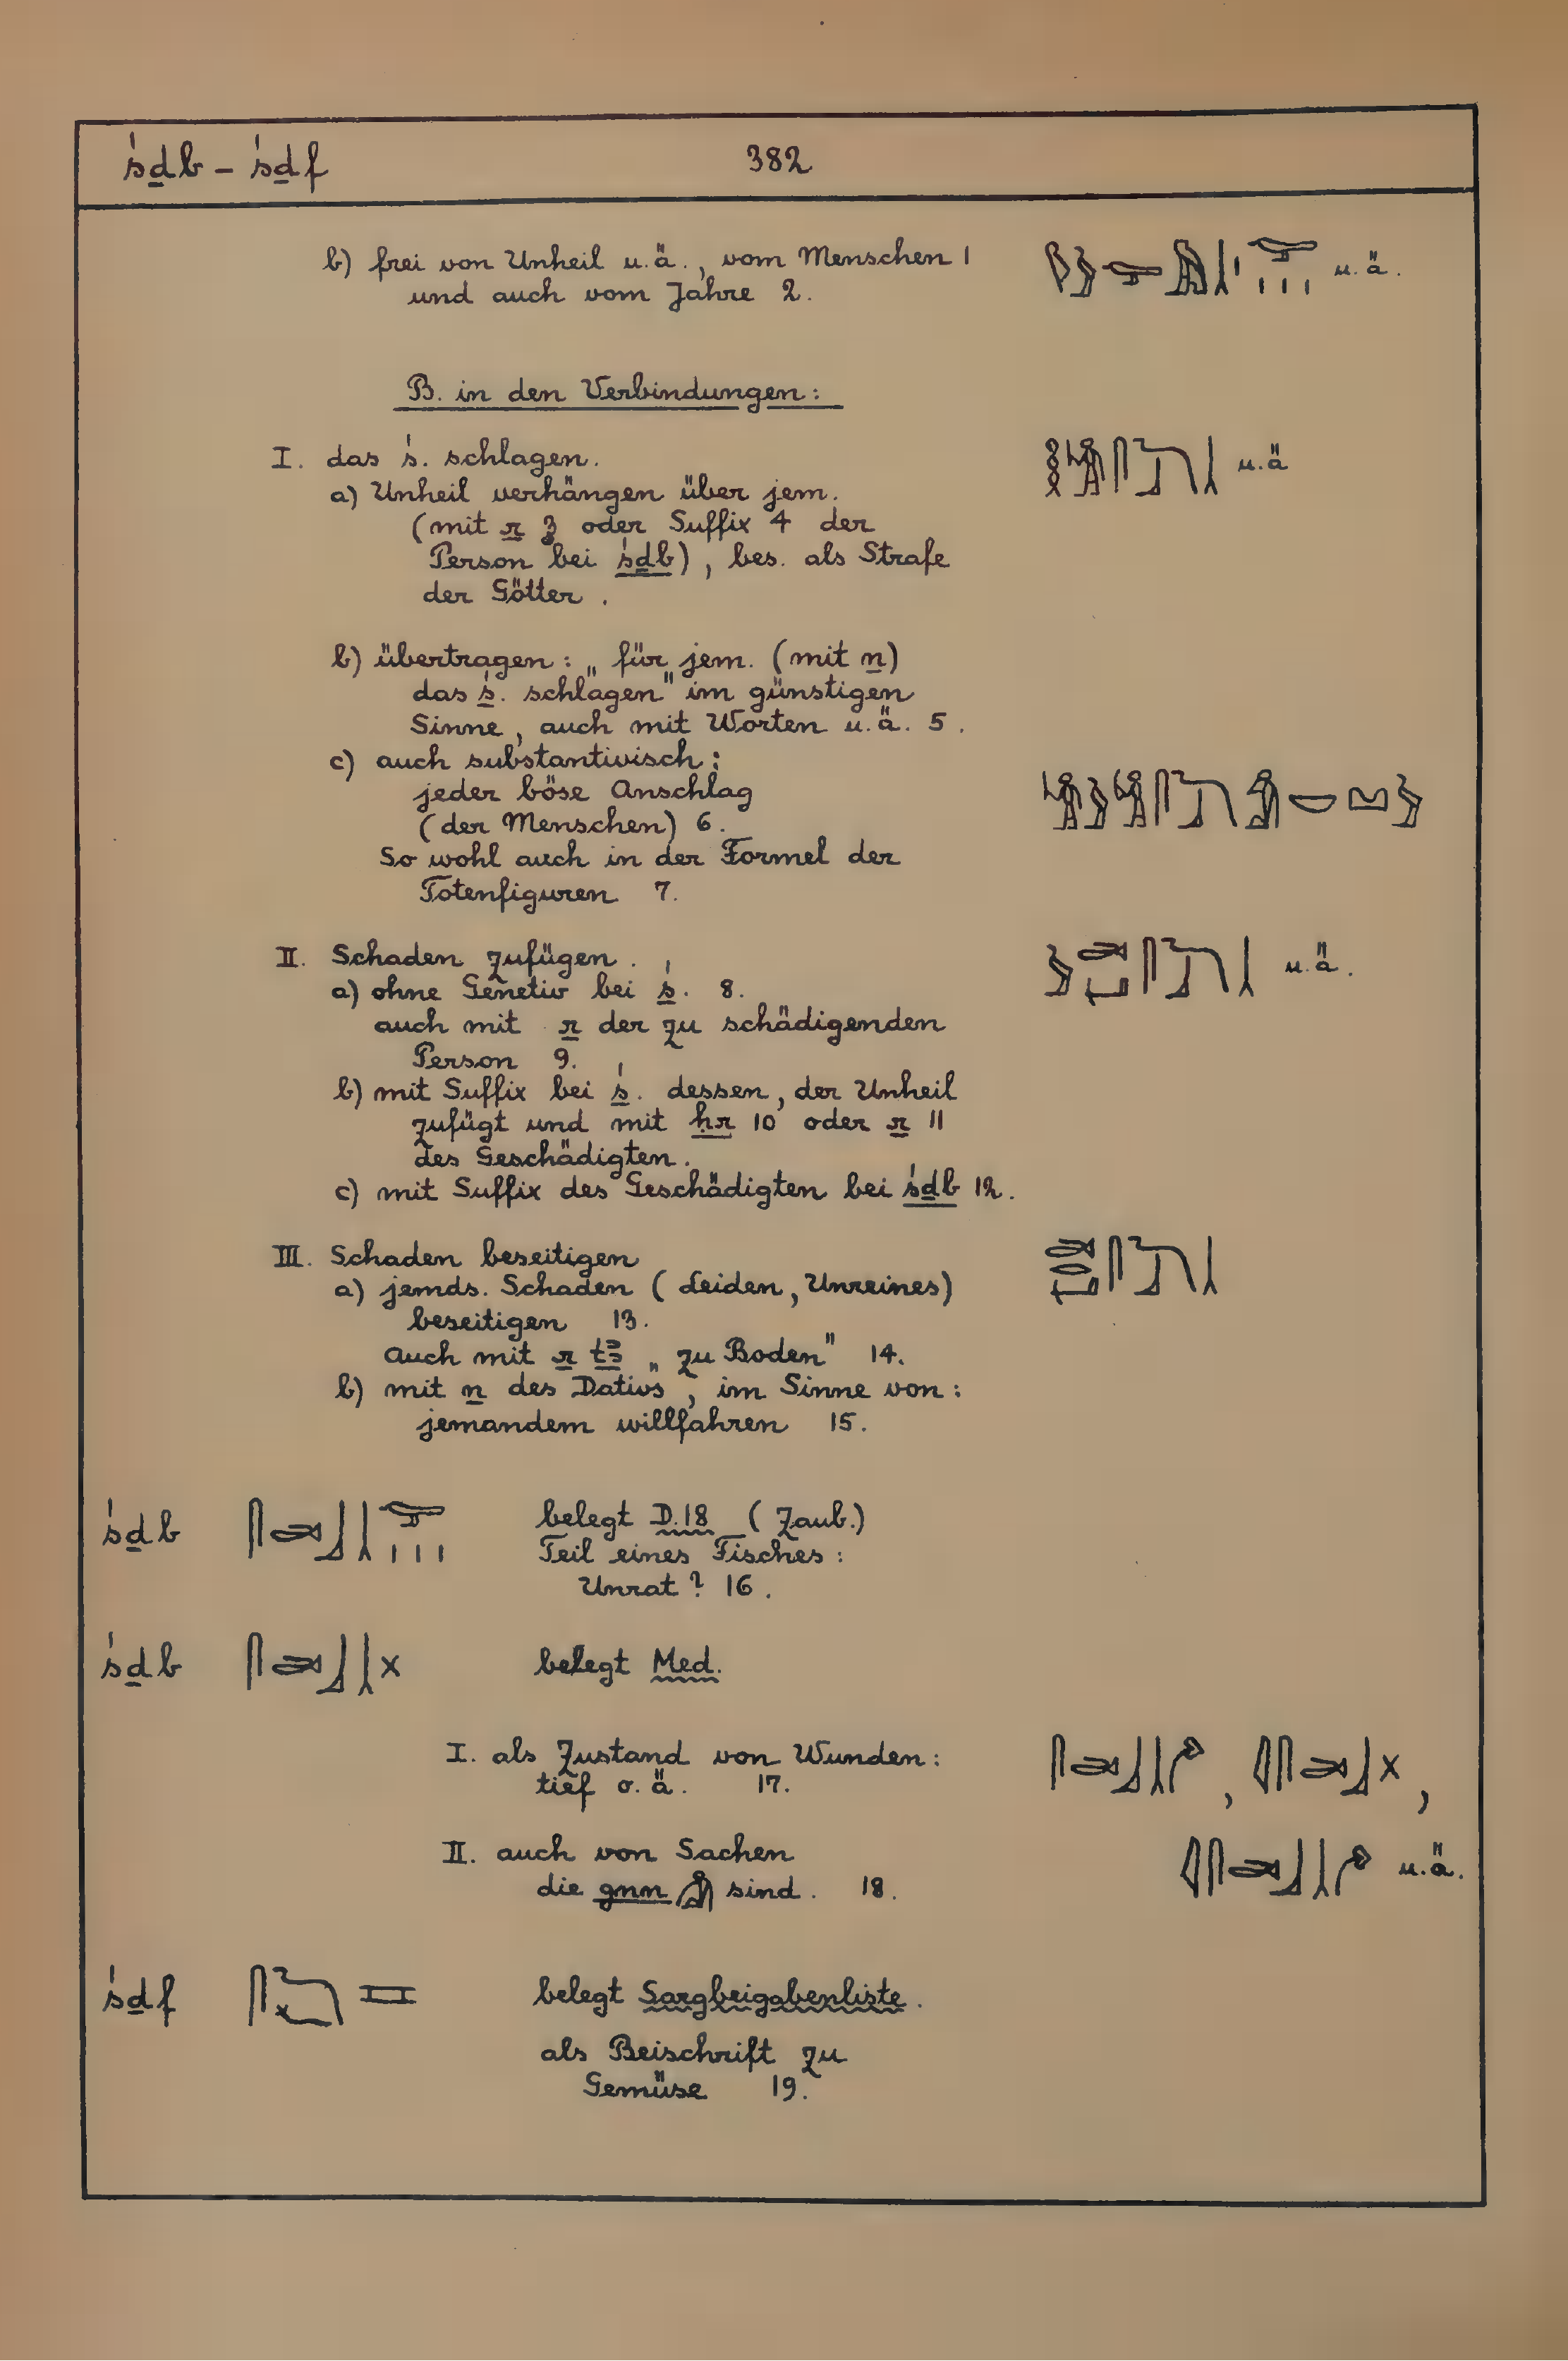 śḏb – śḏf 382
b) frei von Unheil u.ä., vom Menschen 1 u.ä.
und auch vom Jahre 2.
B. in den Verbindungen:
I. das ś. schlagen. u.ä
a) Unheil verhängen über jem.
(mit r 3 oder Suffix 4 der
Person bei śḏb), bes. als Strafe
der Götter.
b) übertragen: „für jem. (mit n)
das ś. schlagen" im günstigen
Sinne, auch mit Worten u.ä. 5.
c) auch substantivisch:
jeder böse Anschlag
(der Menschen) 6.
So wohl auch in der Formel der
Totenfiguren 7.
II. Schaden zufügen. u.ä.
a) ohne Genetiv bei ś. 8.
auch mit r der zu schädigenden
Person 9.
b) mit Suffix bei ś. dessen, der Unheil
zufügt und mit ḥr 10 oder r 11
des Geschädigten.
c) mit Suffix des Geschädigten bei śḏb 12.
III. Schaden beseitigen
a) jemds. Schaden (Leiden, Unreines)
beseitigen 13.
Auch mit r tꜣ „zu Boden" 14.
b) mit n des Dativs, im Sinne von:
jemandem willfahren 15.
śḏb belegt D.18 (Zaub.)
Teil eines Fisches:
Unrat? 16.
śḏb belegt Med.
I. als Zustand von Wunden:
tief o.ä. 17. , ,
II. auch von Sachen
die gnn sind. 18. u.ä.
śḏf belegt Sargbeigabenliste.
als Beischrift zu
Gemüse 19.